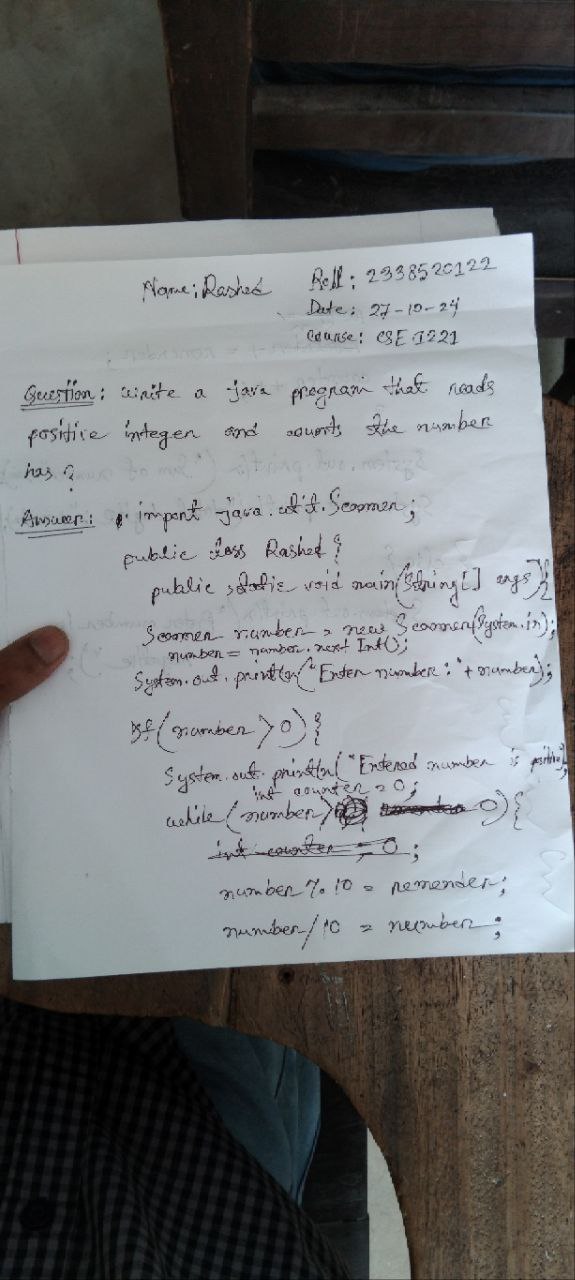 Name: Rashed
Roll: 2338520122
Date: 27-10-24
Course: CSE 1221
Question: write a java program that reads
positive integer and counts the number
has?
Answer: import java.util.Scanner;
public class Rashed {
public static void main(String[] args){
Scanner number = new Scanner(System.in);
number = number.next Int();
System.out.println("Enter number: "+number);
If (number > 0) {
System.out.println("Entered number is positive");
int counter = 0;
while (number > 0) {
int counter = 0;
number % 10 = remender;
number / 10 = number;